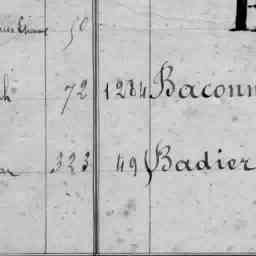 50
72 1284 Baconn
323 49 Badier